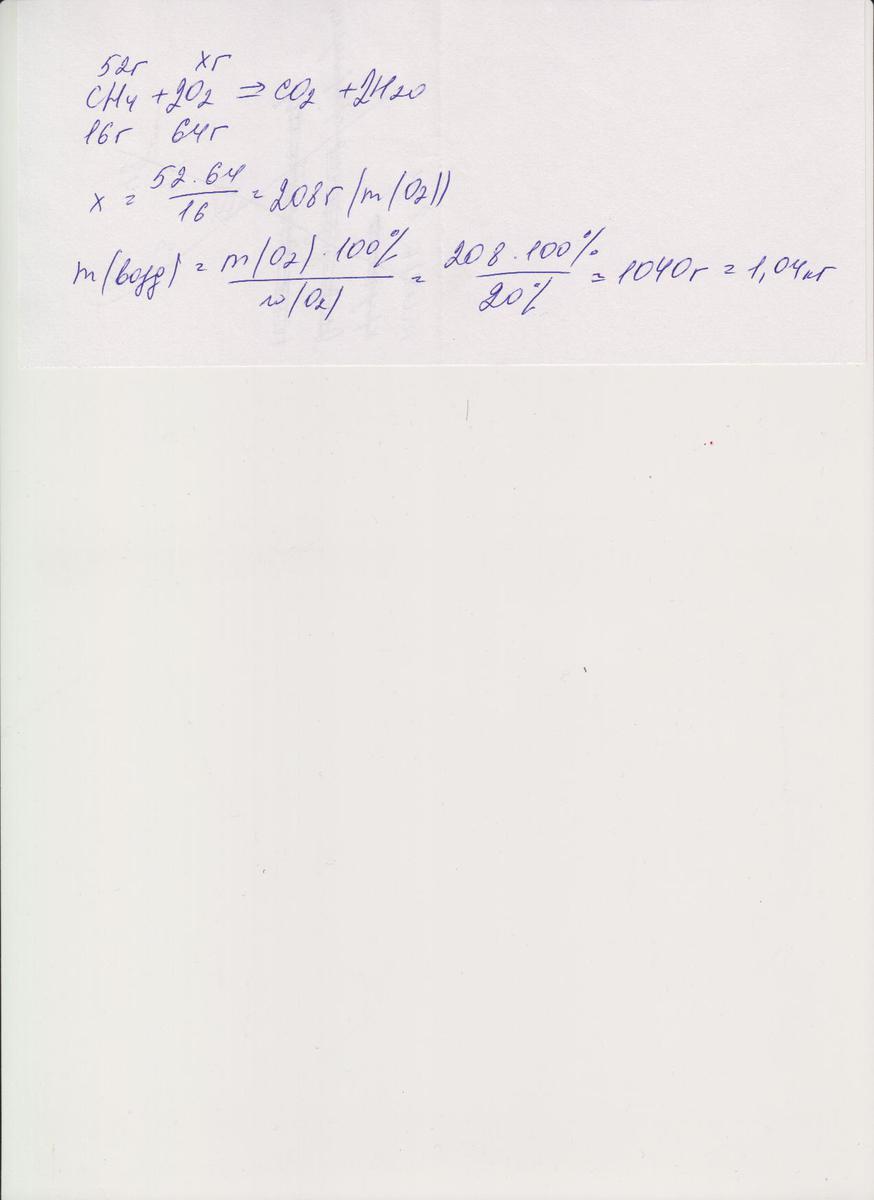 52г xг
CH4 + 2O2 => CO2 + 2H2O
16г 64г
x = 52·64/16 = 208г (m(O2))
m(возд) = m(O2)·100%/w(O2) = 208·100%/20% = 1040г = 1,04кг